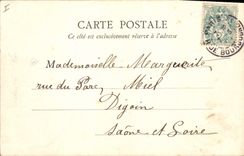 CARTE POSTALE
Ce côté est exclusivement réservé à l'adresse
Mademoiselle Marguerite
rue du Parc, Miel
Digoin
Saône et Loire